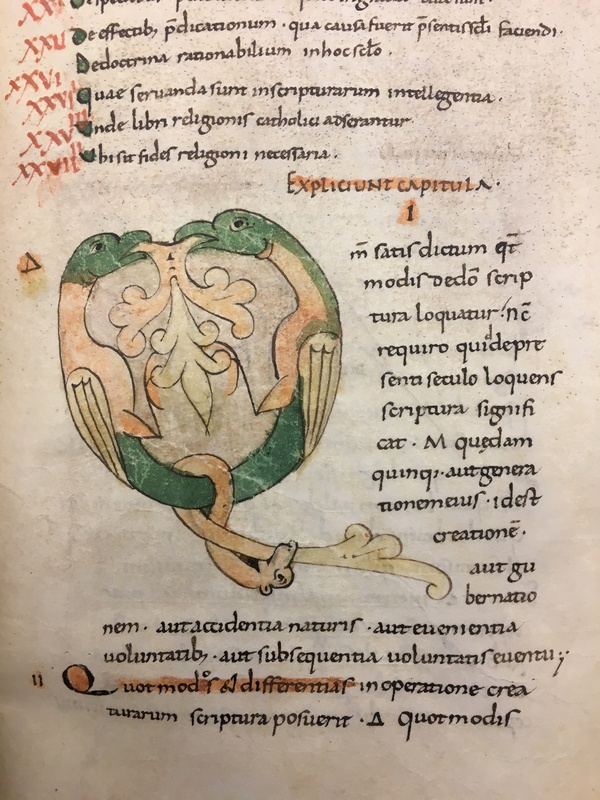 De effectib; p̄dicationum · qua causa fuerit p̄sentis scli faciendi·
De doctrina rationabilium in hoc sclō·
XXVI Quae servanda sunt in scripturarum intellegentia·
Unde libri religionis catholici adserantur·
Ubi sit fides religioni necessaria·
EXPLICIUNT CAPITULA·
I
Δ Qm̄ satis dictum qt̄
modis de dō scrip
tura loquatur· nc̄
requiro quid de pre
senti seculo loquens
scriptura signifi
cat · M quędam
quinq;· aut genera
tionem eius · idest
creationē·
aut gu
bernatio
nem · aut accidentia naturis · aut evenientia
voluntatib; · aut subsequentia voluntatis eventu;·
II Quot modos & differentias in operatione crea
turarum scriptura posuerit · Δ Quot modis